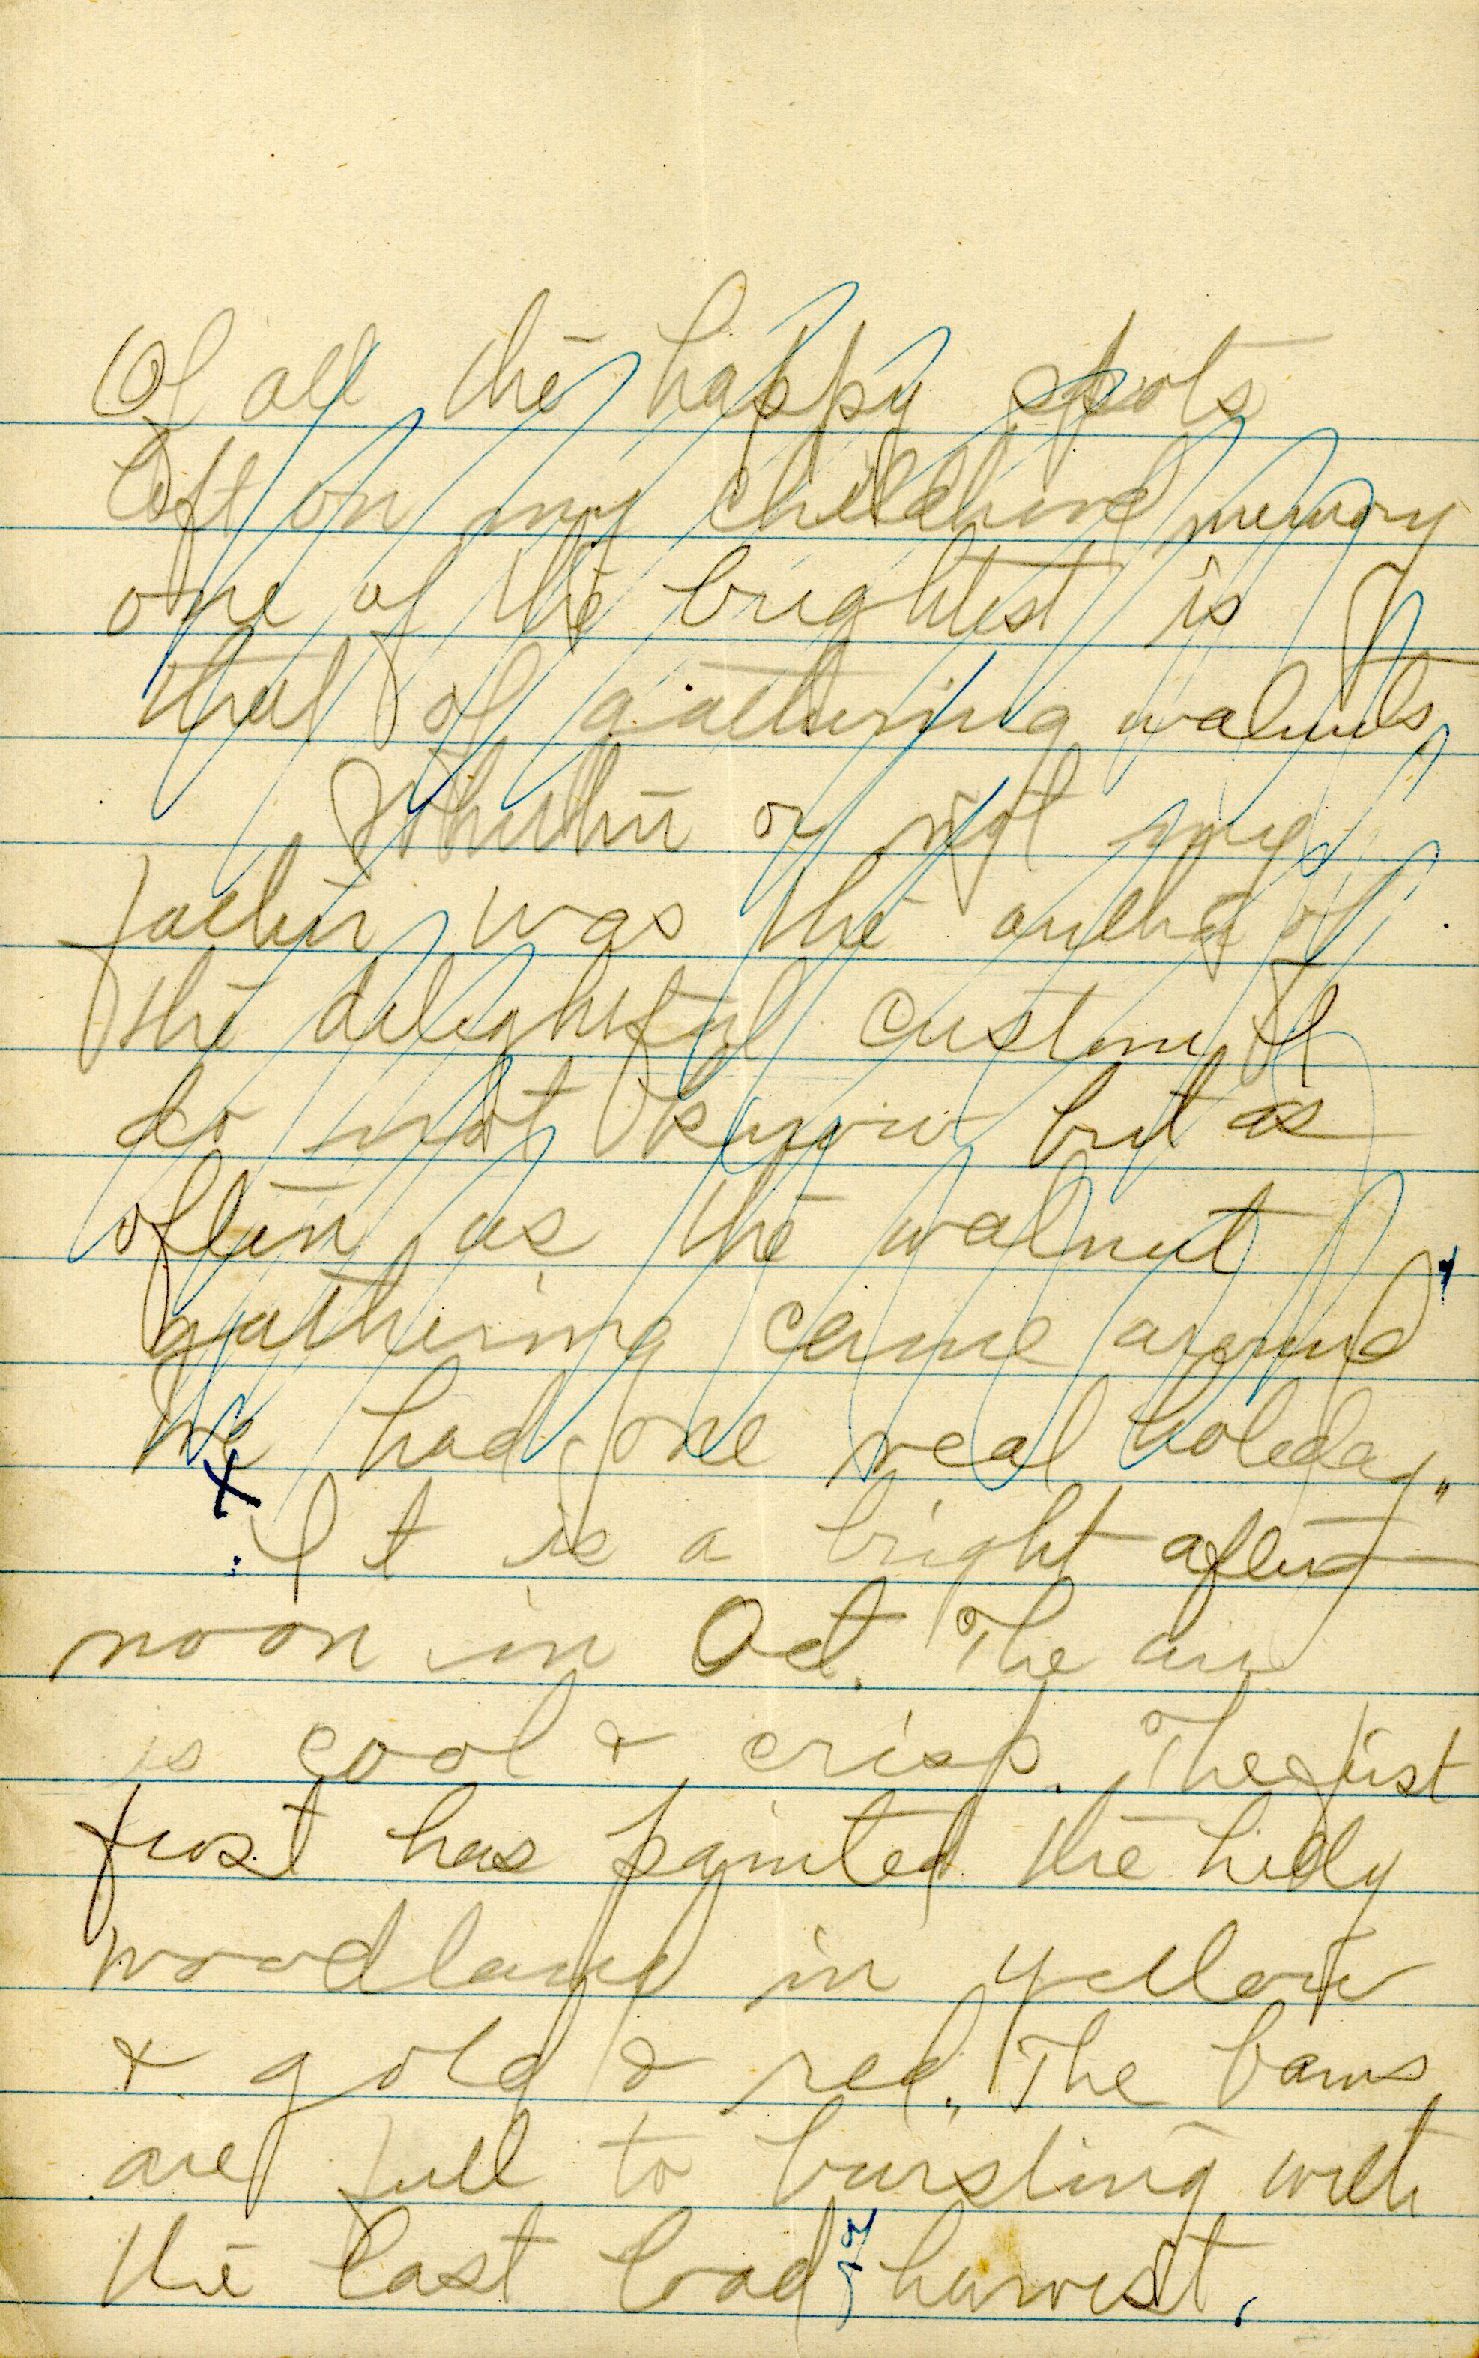 Of all the happy spots
left on my childhood memory
one of the brightest is
that of gathering walnuts,
Whether or not my
father was the author of
the delightful custom I
do not know but as
often as the walnut
gathering came around
we had one real holeday,
x It is a bright after
noon in Oct. The air
is cool & crisp. The first
frost has painted the hilly
woodland in yellow
& gold & red. The barns
are full to bursting with
the last load of harvest.